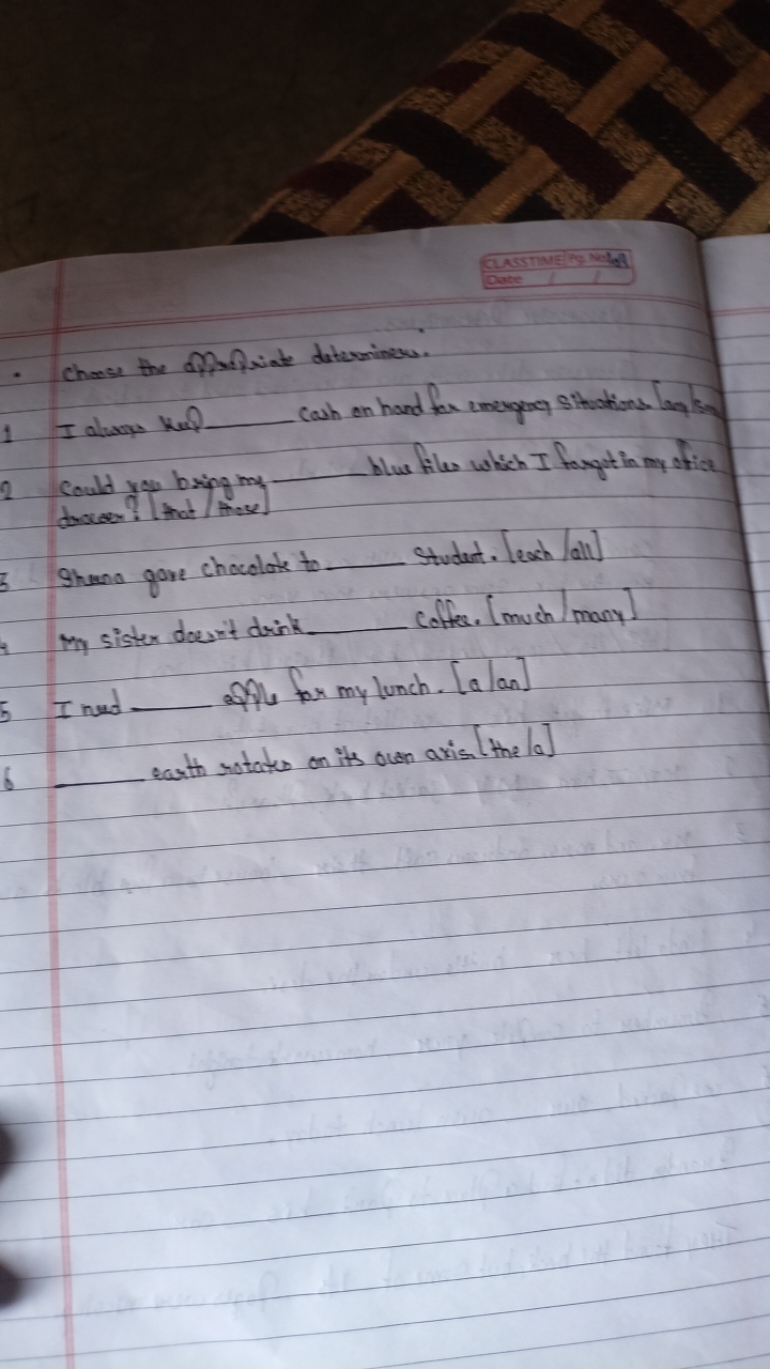 CLASSTIME Pg. No.
Date / /
Choose the appropriate determiners.
1 I always keep ______ cash on hand for emergency situations. [any/some
2 Could you bring my ______ blue files which I forgot in my office
drawer? [that / those]
3 gave chocolate to ______ student. [each /all]
4 My sister doesn't drink ______ coffee. [much / many]
5 I need ______ apple for my lunch. [a/an]
6 ______ earth rotates on its own axis. [the /a]